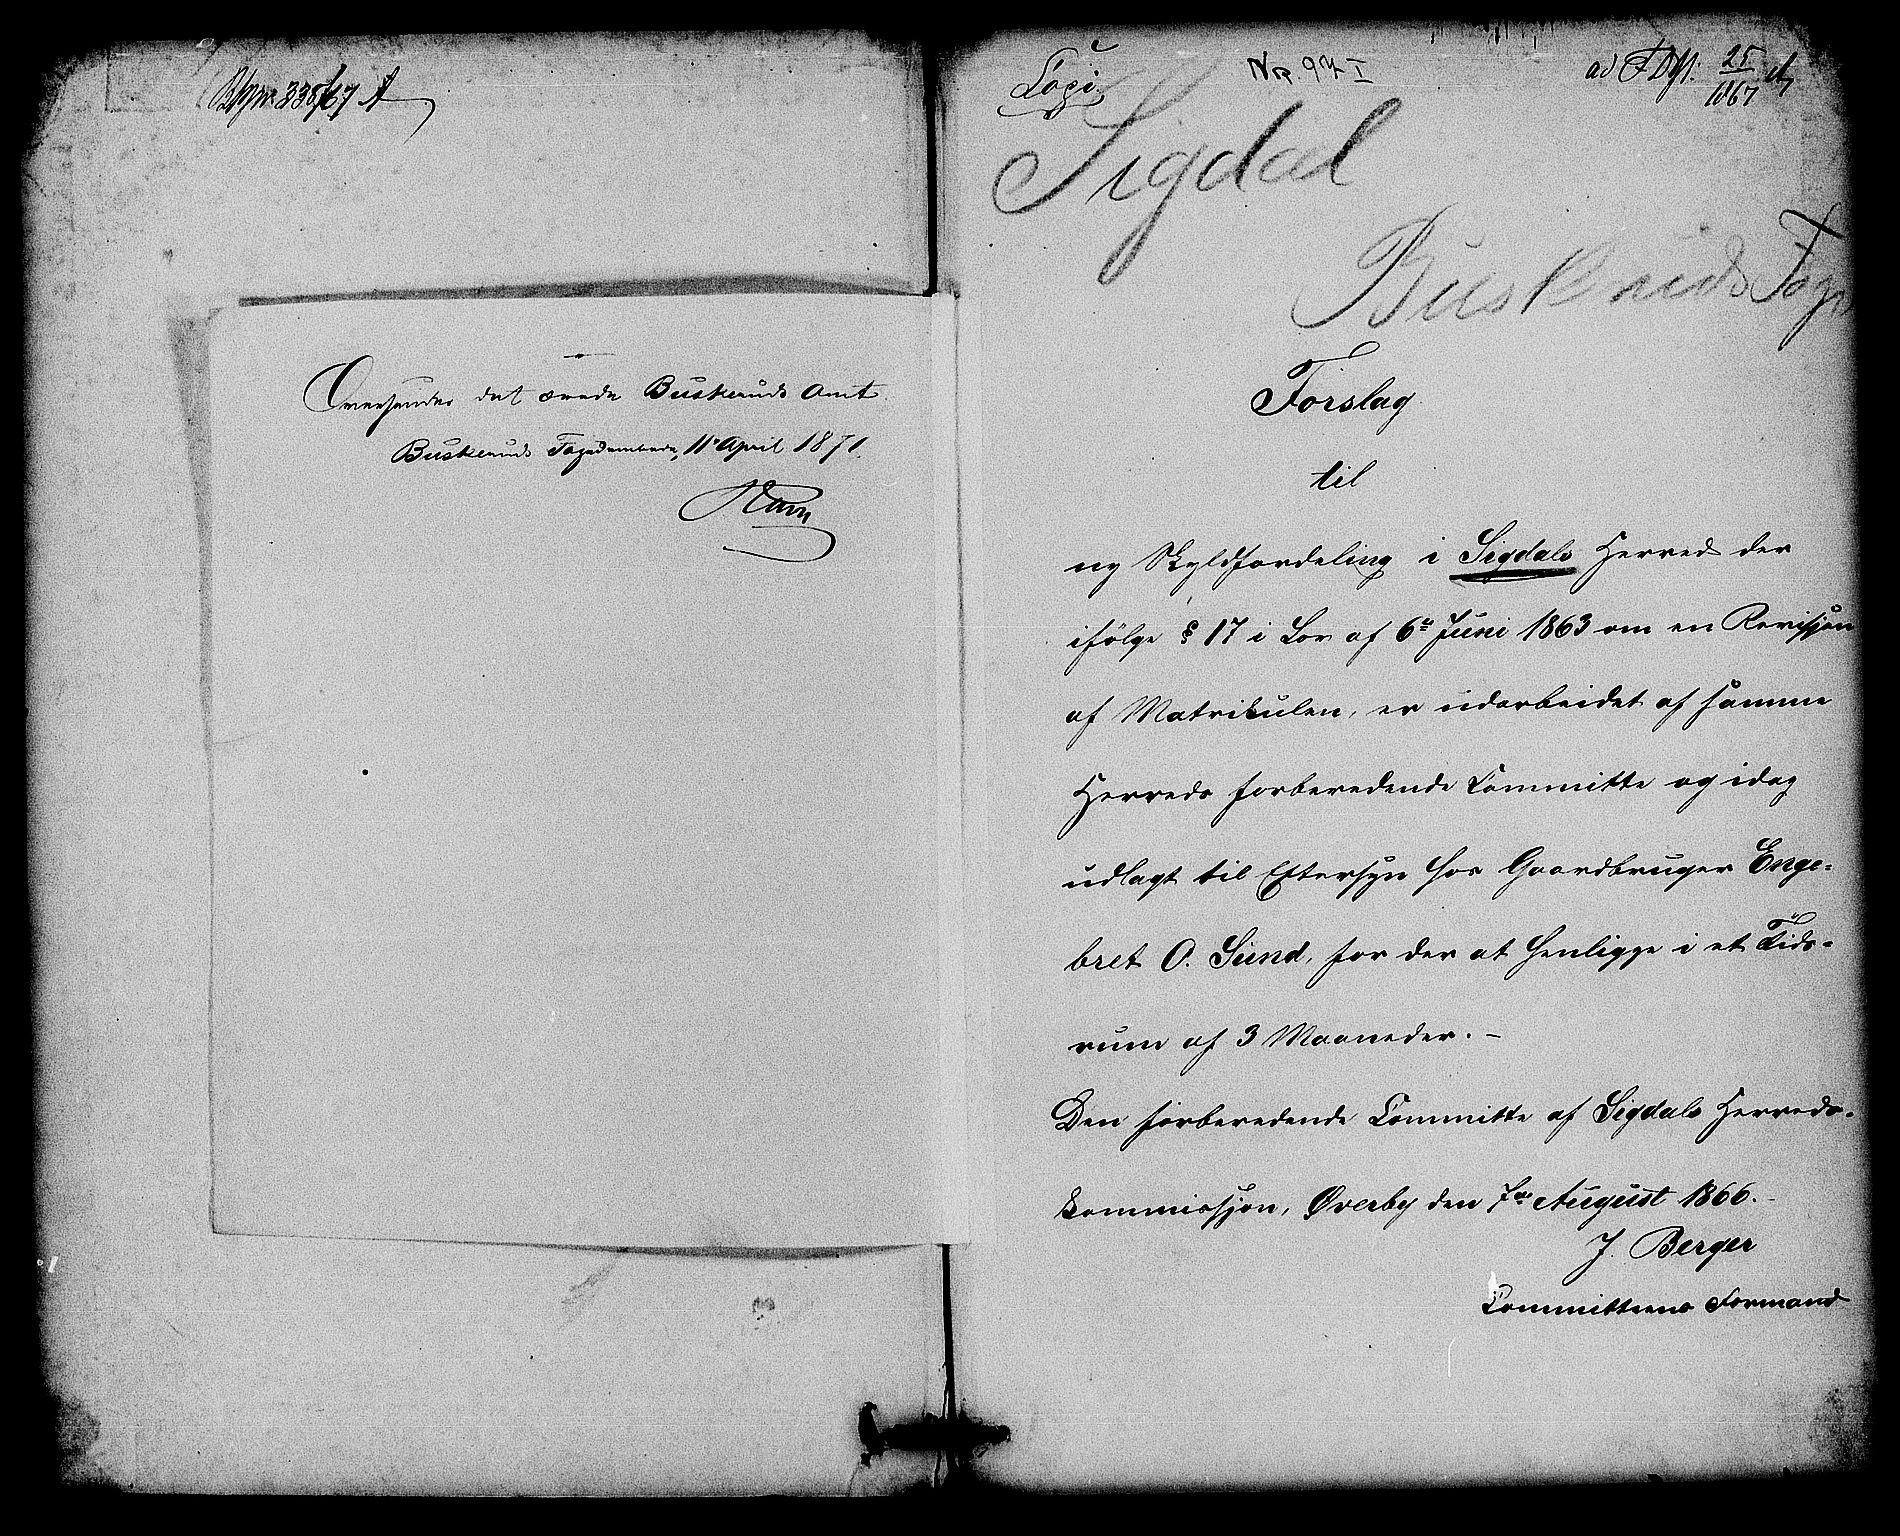 338/67 A
Oversendes det ærede Buskeruds Amt.
Buskeruds Fogedembede, 11te April 1871.
No. 97 I
ad 25/1867
Sigdal
Buskeruds Fogd
Forslag
til
ny Skyldfordeling i Sigdals Herred der
ifölge § 17 i Lov af 6te Juni 1863 om en Revisjon
af Matrikulen, er udarbeidet af samme
Herreds forberedende Committe og idag
udlagt til Eftersyn hos Gaardbruger Enge-
bret O. Sund, for der at henligge i et Tids-
rum af 3 Maaneder. -
Den forberedende Committe af Sigdals Herreds-
kommissjon, Øverby den 7de August 1866. -
J. Berger
Committeens Formand